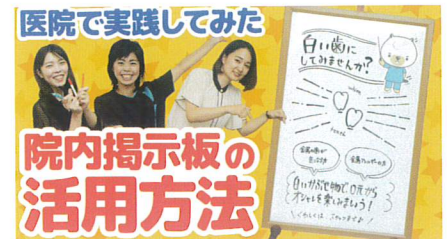 医院で実践してみた
院内掲示板の
活用方法
白い歯に
してみませんか?
白いかぶせ物で、口元から
オシャレを楽しみましょう!